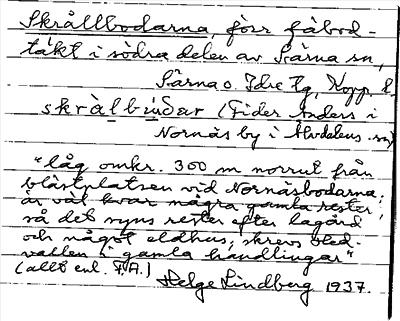 Skrållbodarna, förr fäbod-
täkt i södra delen av Särna sn,
Särna o. Idre tg, Kopp. l.
skràlbúðar (Fider Anders i
Nornäs by i Älvdalens sn)
"låg omkr. 300 m norrut från
blästplatsen vid Nornäsbodarna;
är väl kvar några gamla rester,
så det syns rester efter lagård
och något eldhus; skrevs
vallen i gamla handlingar"
(allt enl. F.A.)
Helge Lindberg 1937.